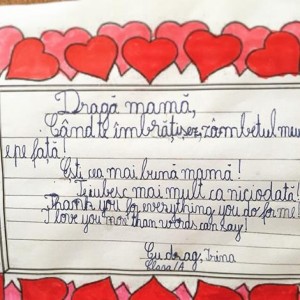 Dragă mamă,
Când te îmbrățișez, zâmbetul meu
e pe față!
Ești cea mai bună mamă!
Te iubesc mai mult ca niciodată!
Thank you for everything you do for me!
I love you more than words can say!
Cu drag, Irina
Clasa IA